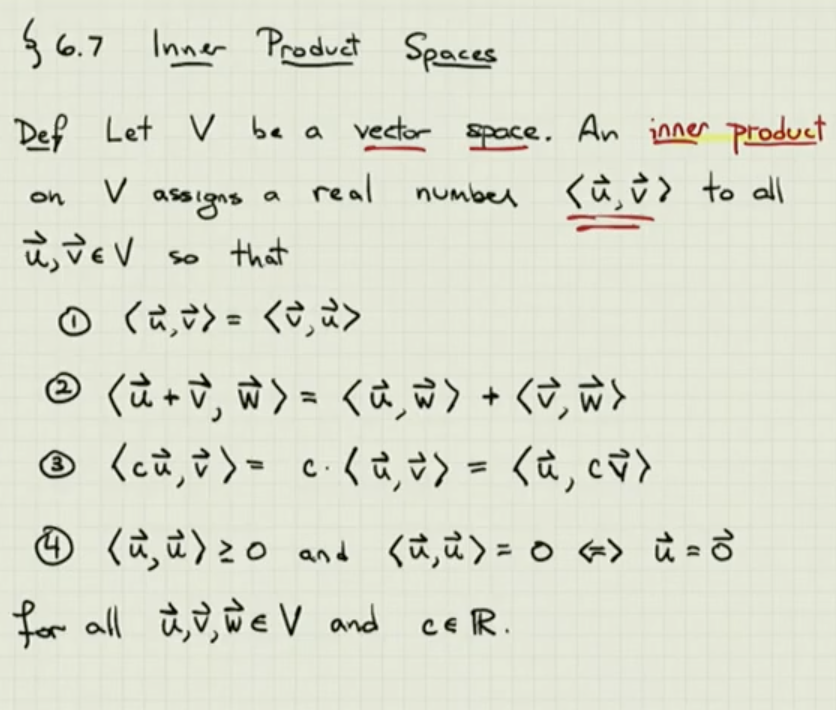 § 6.7 Inner Product Spaces
Def Let V be a vector space. An inner product
on V assigns a real number ⟨u⃗,v⃗⟩ to all
u⃗,v⃗ ∈ V so that
① ⟨u⃗,v⃗⟩ = ⟨v⃗,u⃗⟩
② ⟨u⃗ + v⃗, w⃗⟩ = ⟨u⃗,w⃗⟩ + ⟨v⃗,w⃗⟩
③ ⟨cu⃗,v⃗⟩ = c · ⟨u⃗,v⃗⟩ = ⟨u⃗, cv⃗⟩
④ ⟨u⃗,u⃗⟩ ≥ 0 and ⟨u⃗,u⃗⟩ = 0 ⇔ u⃗ = 0⃗
for all u⃗,v⃗,w⃗ ∈ V and c ∈ ℝ.